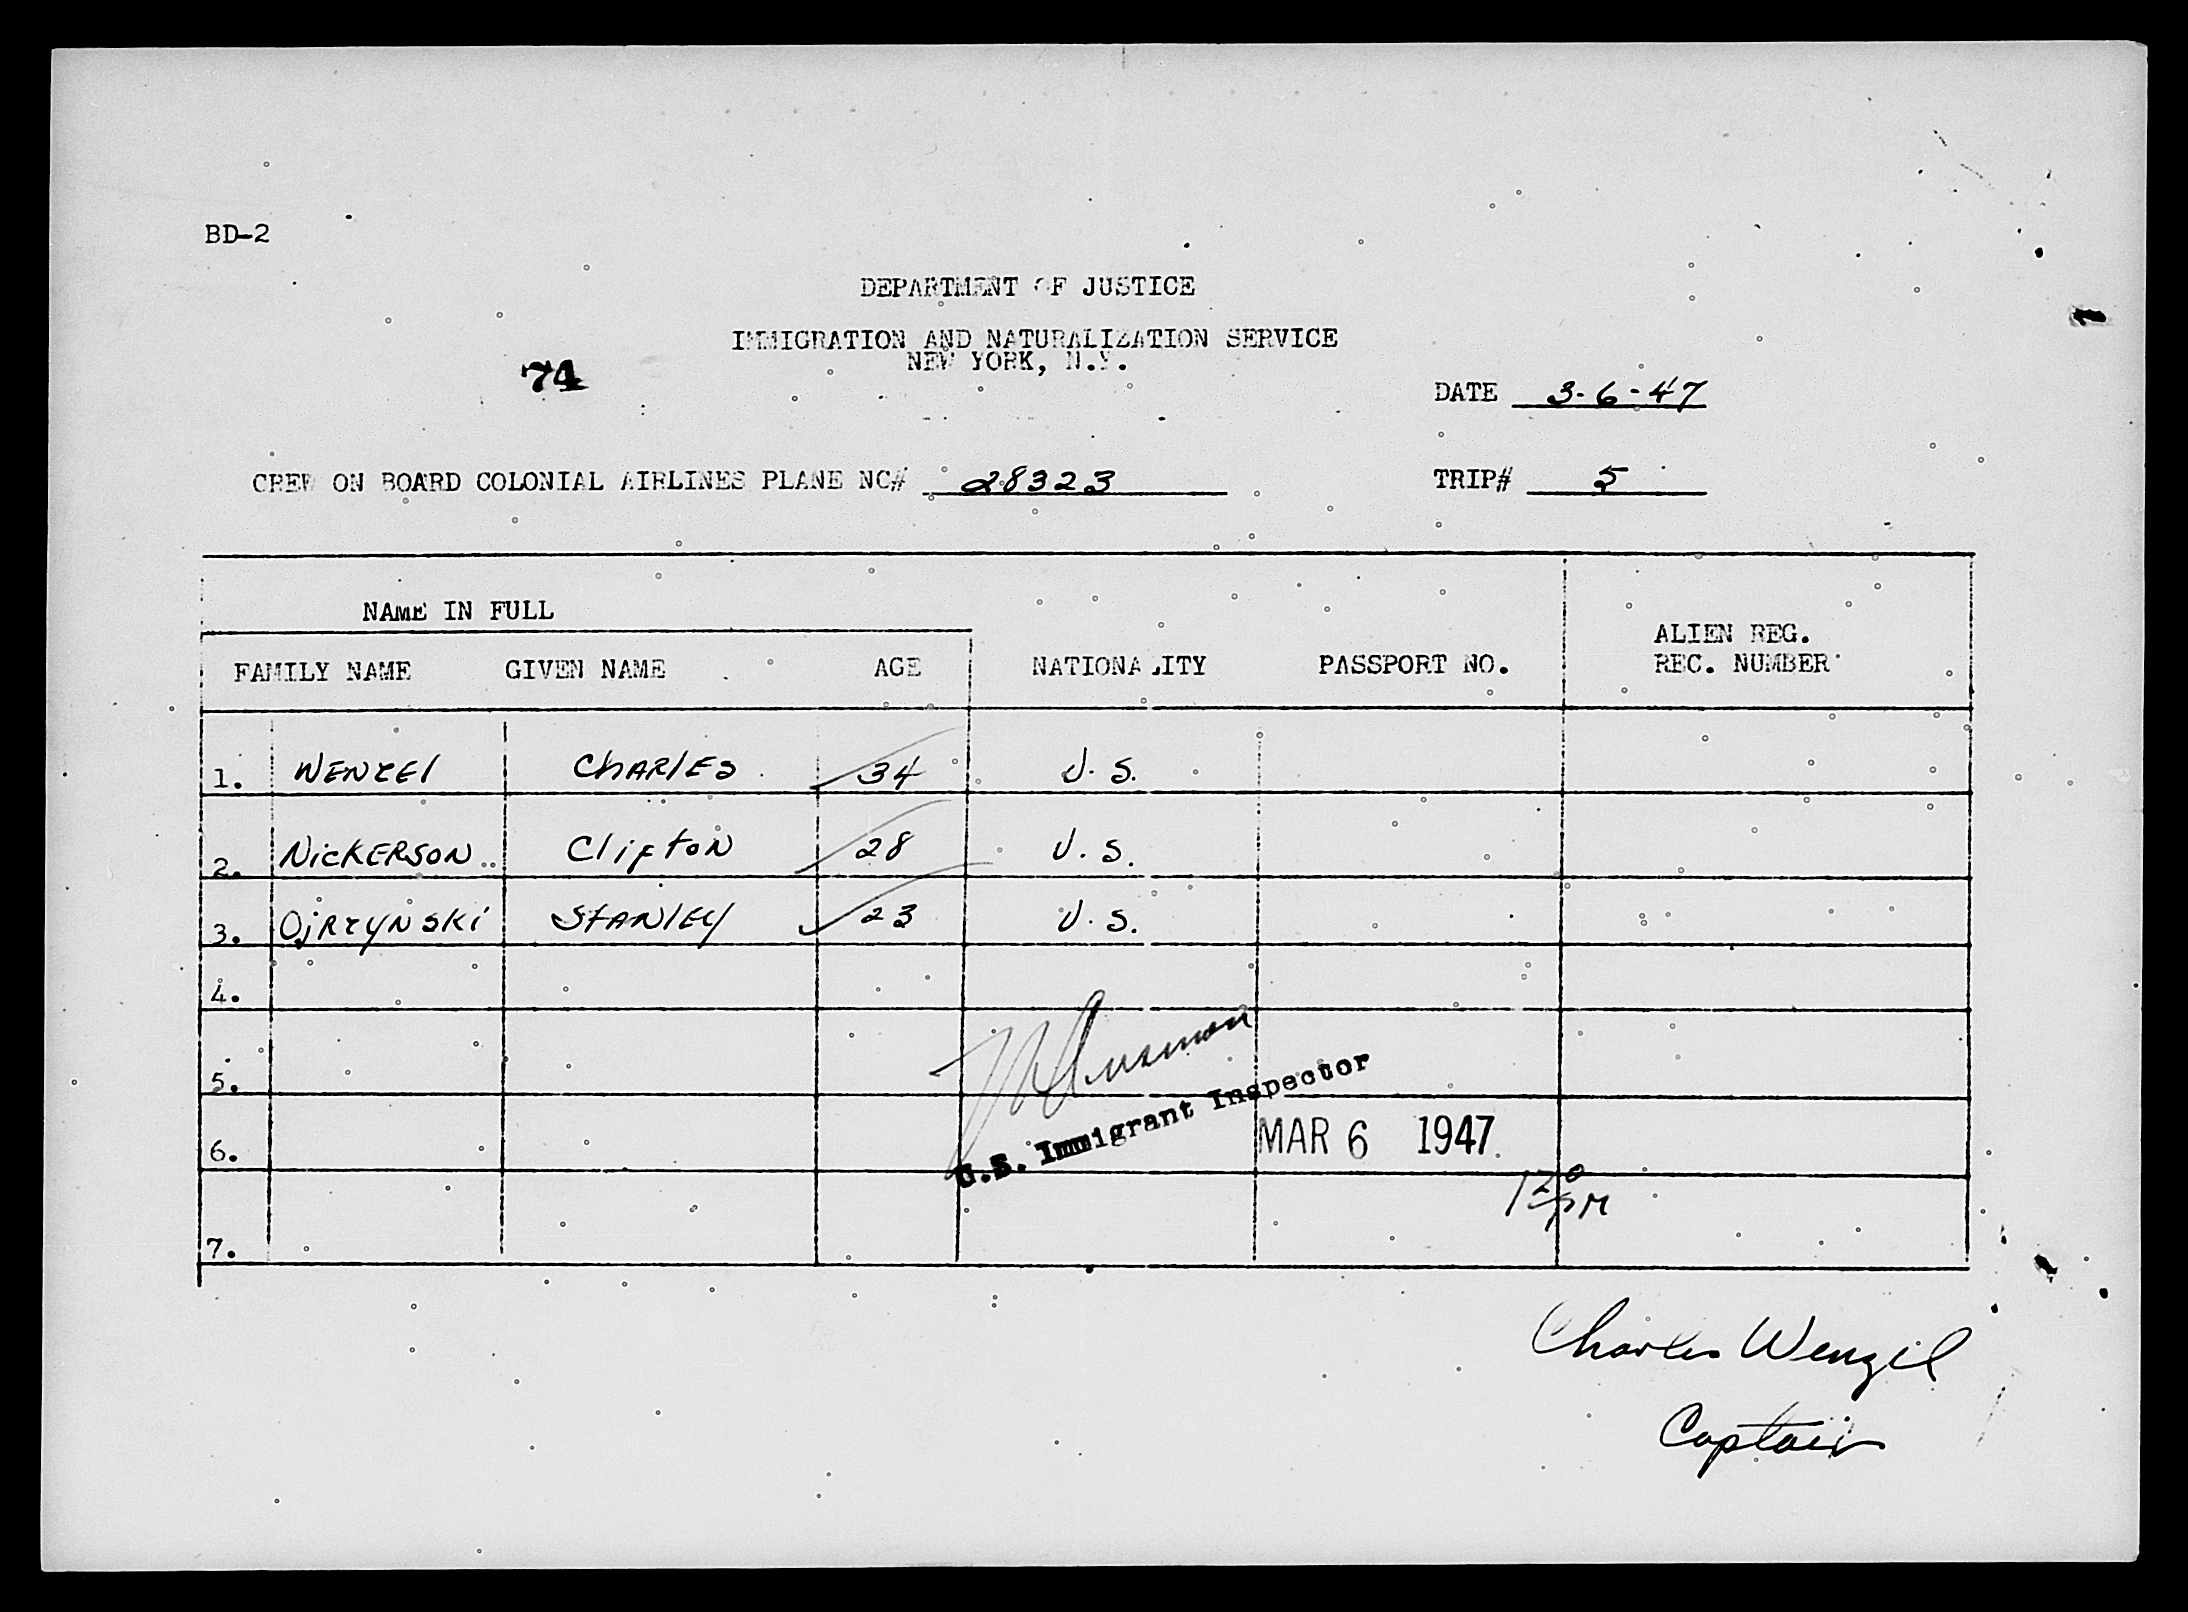 BD-2
DEPARTMENT OF JUSTICE
IMMIGRATION AND NATURALIZATION SERVICE
NEW YORK, N.Y.
74
DATE 3-6-47
CREW ON BOARD COLONIAL AIRLINES PLANE NC# 28323 TRIP# 5
NAME IN FULL
FAMILY NAME GIVEN NAME AGE NATIONALITY PASSPORT NO. ALIEN REG. REC. NUMBER
1. WENZEl ChARlES 34 U.S.
2. NicKERSON ClifTON 28 U.S.
3. OjRzyNSKi STANlEy 23 U.S.
4.
5.
6.
7.
U.S. Immigrant Inspector
MAR 6 1947
12⁰ PM
Charles Wenzel
Captain